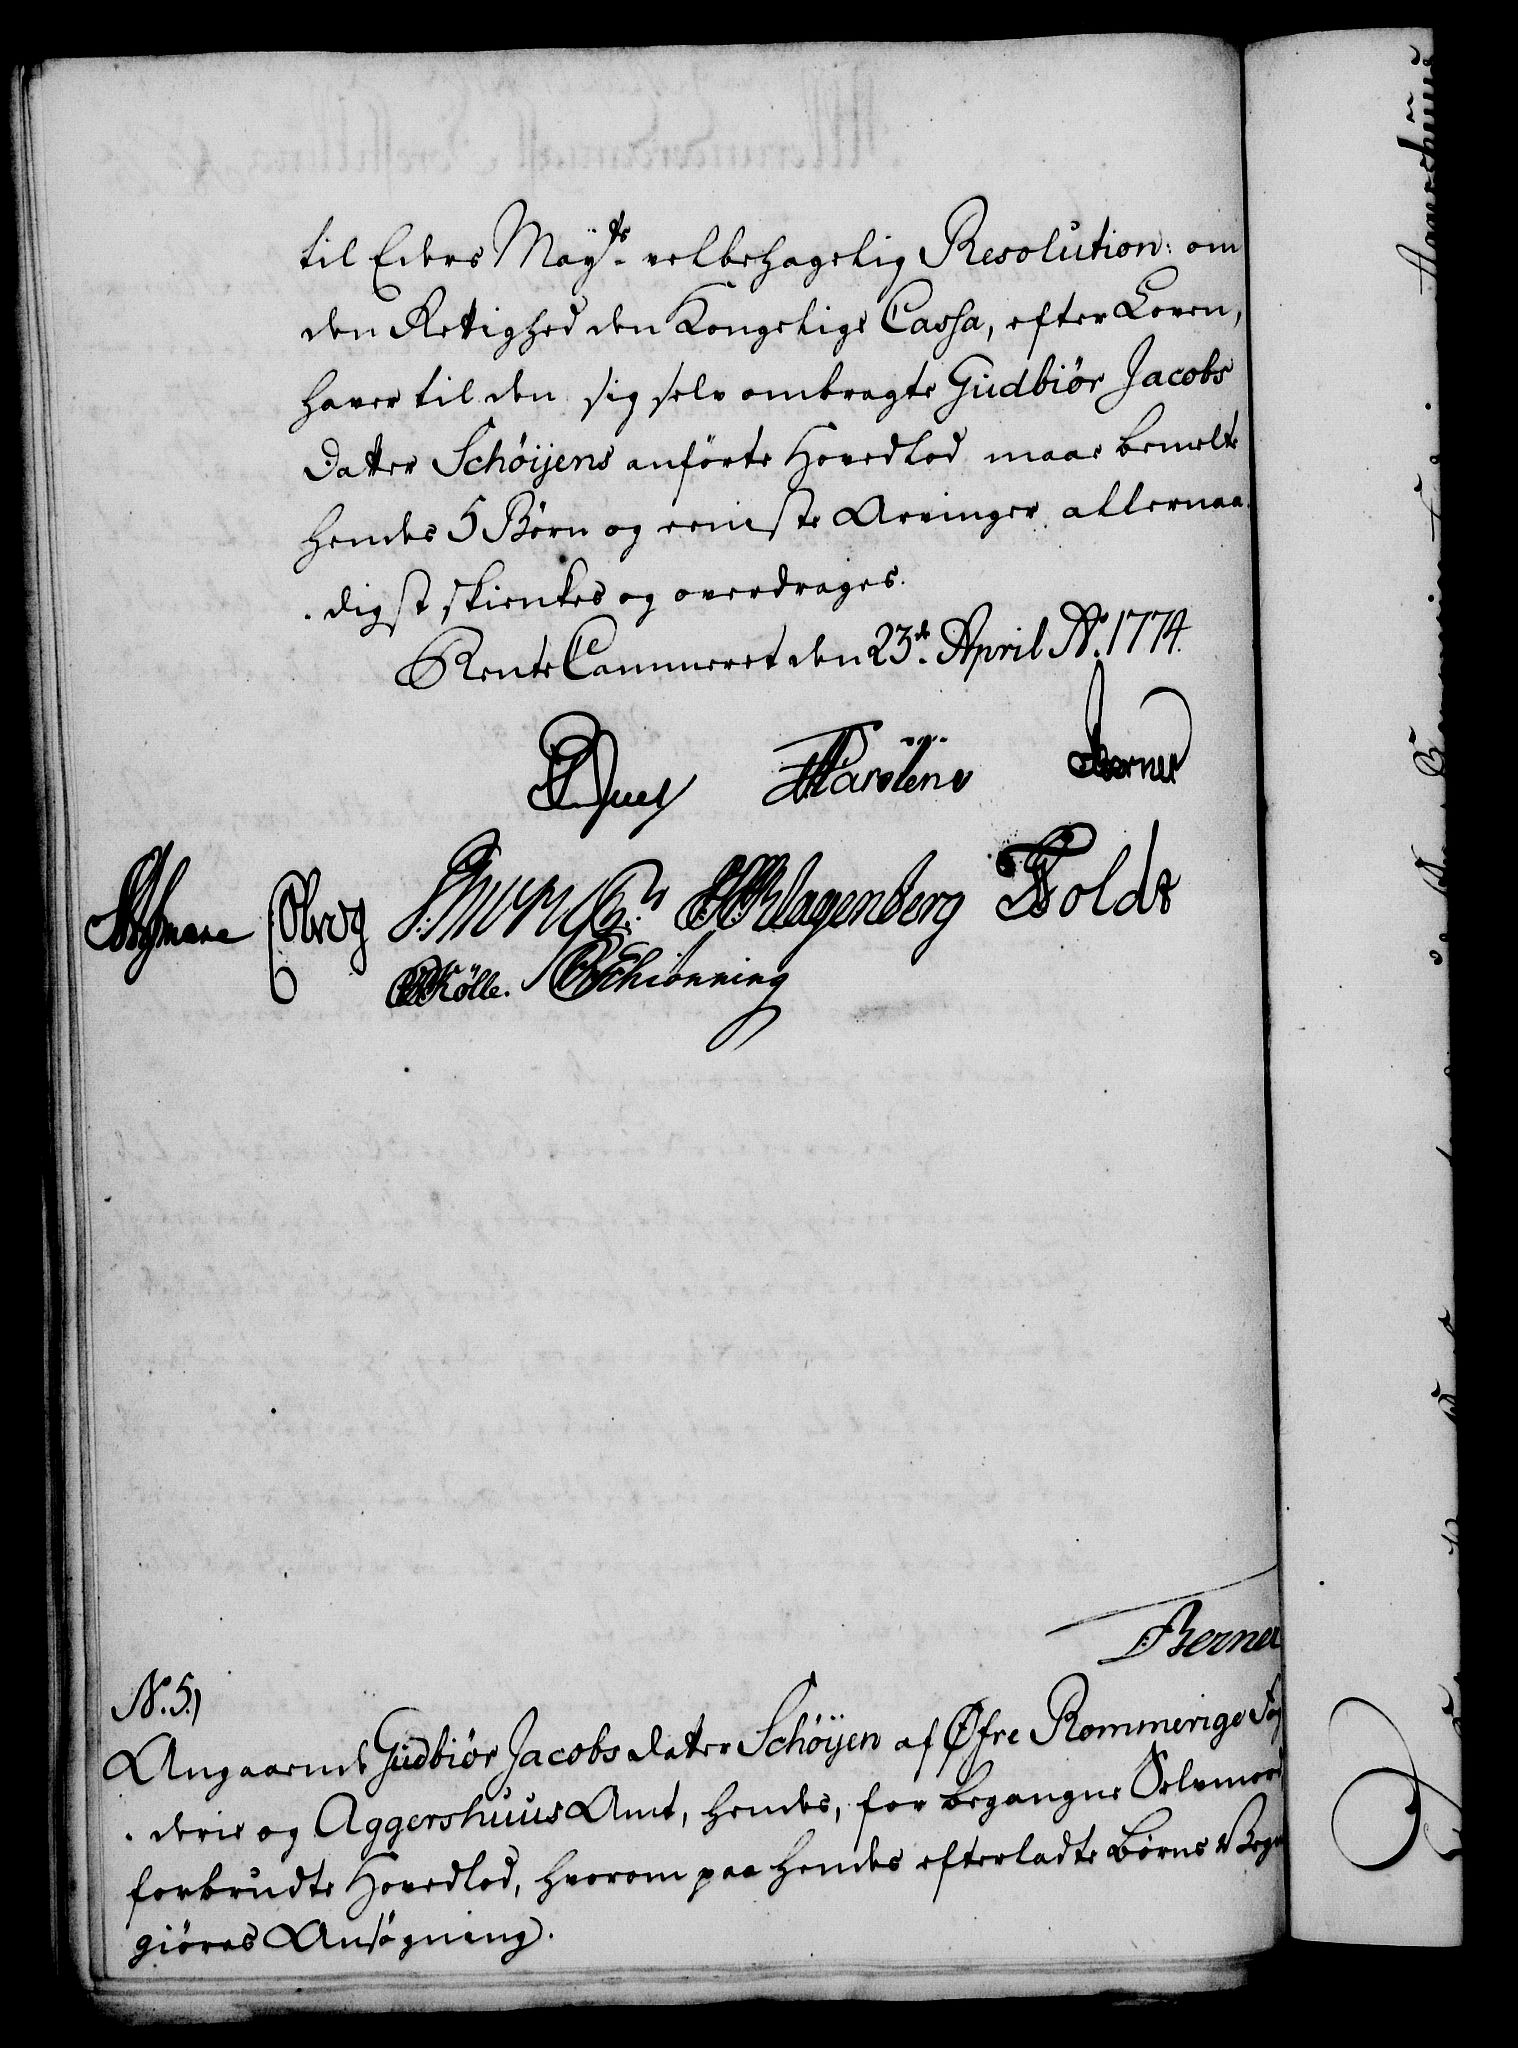 til Eders Mayts velbehagelig Resolution: om
den Rettighed den Kongelige Cassa, efter Loven,
haver til den sig selv ombragte Gudbiør Jacobs
Datter Schøijens anførte Hovedlod maae bemelte
hendes 5 Børn og eeniste Arvinger allernaa-
digst skienkes og overdrages.
Rente Cammeret den 23de April Ao. 1774.
Juel Berner
Obrog Klagenberg Holdt
Kølle. Schiønning
Berner
No. 5.)
Angaaende Gudbiør Jacobs datter Schøijen af Øfre Rommerige Fog
derie og Aggershuus Amt, hendes, for begangne Selvmord
forbrudte Hovedlod, hvorom paa hendes efterladte Børns Vegne
giøres Ansøgning.